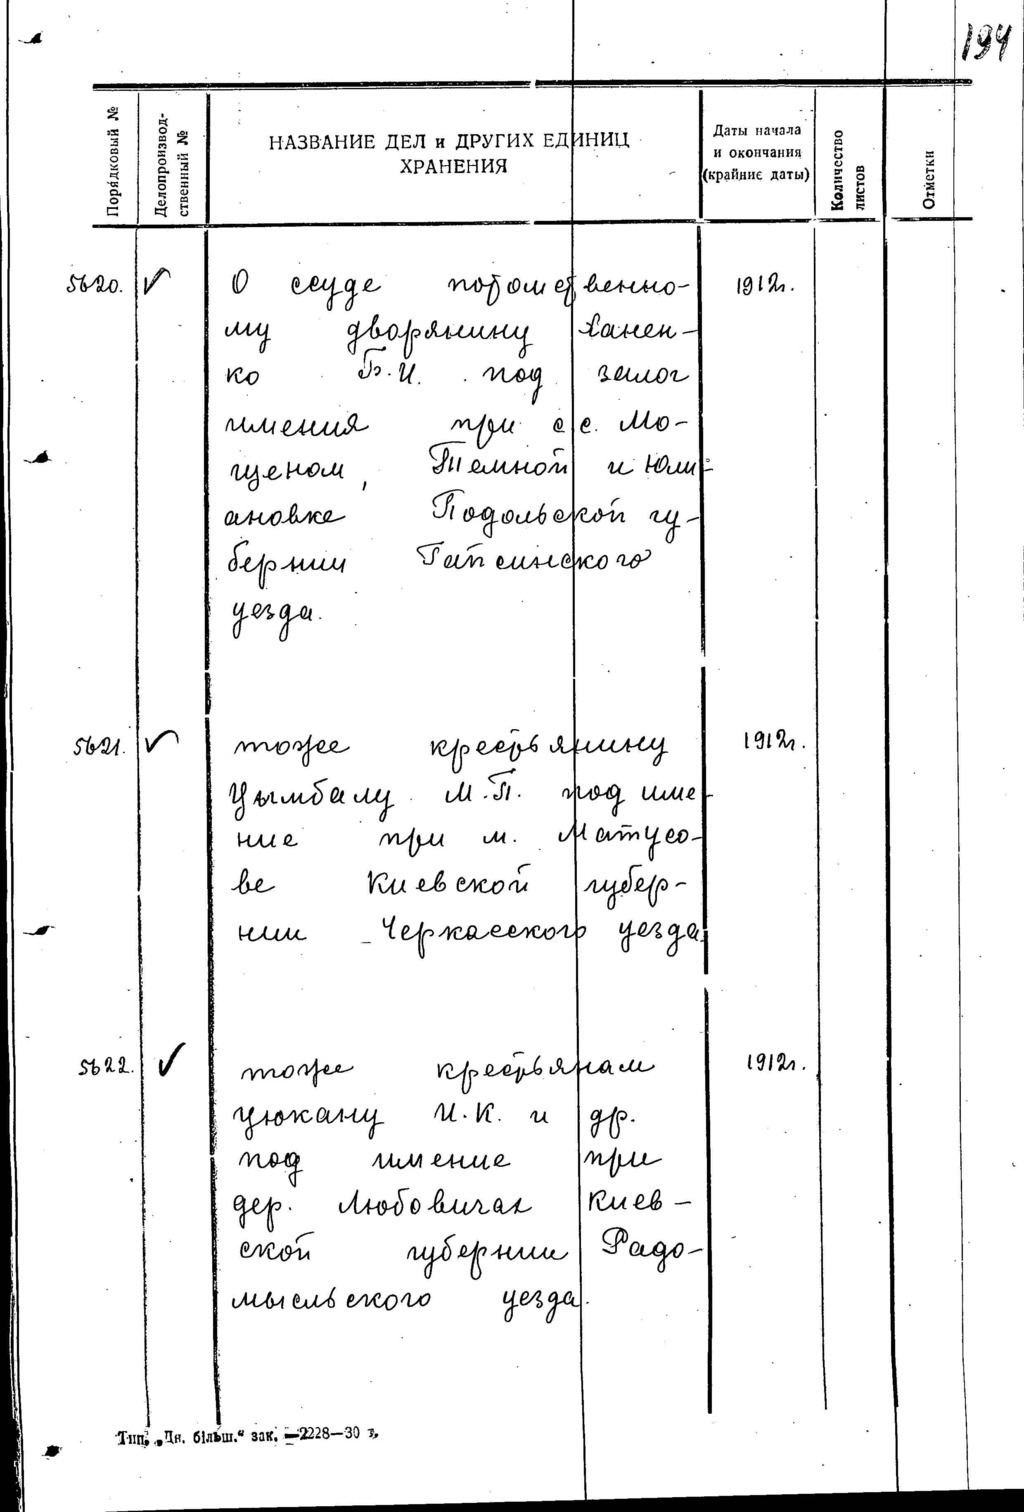 194
Порядковый №
Делопроизвод-
ственный №
НАЗВАНИЕ ДЕЛ и ДРУГИХ ЕДИНИЦ
ХРАНЕНИЯ
Даты начала
и окончания
(крайние даты)
Количество
листов
Отметки
5620. О ссуде потомственно- 1912г.
му дворянину Ханен-
ко Б.И. под залог
имения при с.с. Мо-
щеном, Темной и Юли-
ановке Подольской гу-
бернии Гайсинского
уезда.
5621. тоже крестьянину 1912г.
Цымбалу М.П. под име-
ние при м. Матусо-
ве Киевской губер-
нии Черкасского уезда.
5622. тоже крестьянам 1912г.
Цюкану И.К. и др.
под имение при
дер. Любовичах Киев-
ской губернии Радо-
мысльского уезда.
Тип. „Дн. більш.“ зак. —2228—30 т.